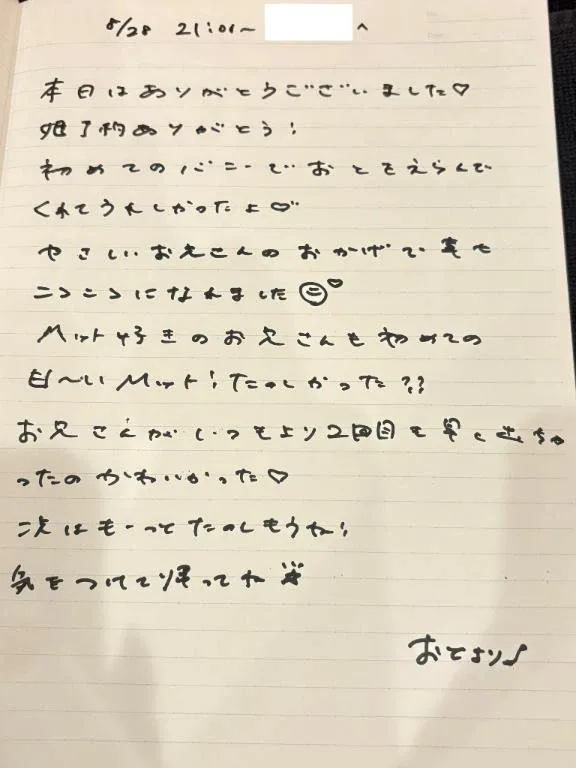 8/28 21:01〜 へ
本日はありがとうございました♡
姫予約ありがとう!
初めてのバニーでおとをえらんで
くれてうれしかったよ♡
やさしいお兄さんのおかげで
ニコニコになれました☺♡
マット好きのお兄さんも初めての
白〜いマット!たのしかった??
お兄さんがいつもより2回目も早く出ちゃ
ったのかわいかった♡
次はも〜っとたのしもうね!
気をつけて帰ってね☆
おとより♪